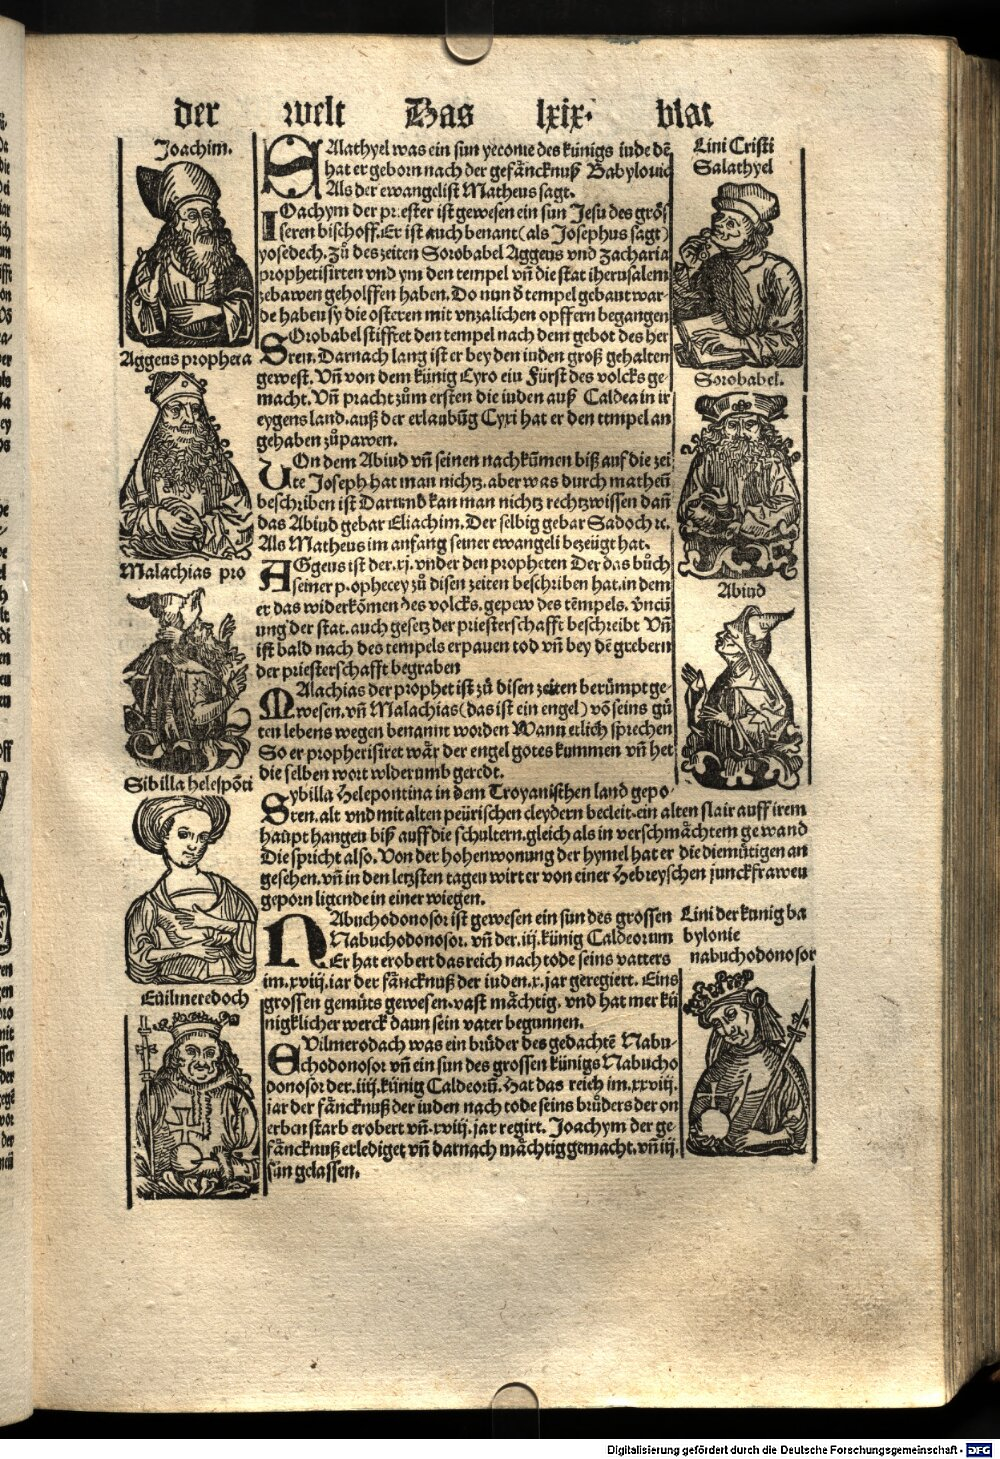 der welt Das lxix. blat
Joachim.
Aggeus propheta
Malachias pro
Sibilla helespõti
Euilmeredoch
SAlathyel was ein sun yecome des künigs iude dẽ
hat er geborn nach der gefäncknuß Babylonie
Als der ewangelist Matheus sagt.
IOachym der priester ist gewesen ein sun Jesu des grös
seren bischoff. Er ist auch benant (als Josephus sagt)
yosedech. Zů des zeiten Sorobabel Aggeus vnd Zacharia
prophetisirten vnd ym den tempel vñ die stat iherusalem
zebawen geholffen haben. Do nun d̃ tempel gebaut war-
de haben sy die osteren mit vnzalichen opffern begangen
SOrobabel stifftet den tempel nach dem gebot des her
ren. Darnach lang ist er bey den iuden groß gehalten
gewest. Vñ von dem künig Cyro ein Fürst des volcks ge-
macht. Vñ pracht zům ersten die iuden auß Caldea in ir
eygens land. auß der erlaubũg Cyri hat er den tempel an
gehaben zů pawen.
VOn dem Abiud vñ seinen nachkũmen biß auf die zei
te Joseph hat man nichtz. aber was durch matheũ
beschriben ist Darumb kan man nichtz rechtz wissen dañ
das Abiud gebar Eliachim. Der selbig gebar Sadoch ꝛc.
Als Matheus im anfang seiner ewangeli bezeügt hat.
AGgeus ist der .xj. vnder den propheten Der das bůch
seiner prophecey zů disen zeiten beschriben hat. in dem
er das widerkõmen des volcks. gepew des tẽmpels. vncũ
ung der stat. auch gesetz der priesterschafft beschreibt Vñ
ist bald nach des tempels erpauen tod vñ bey dẽ grebern
der priesterschafft begraben
MAlachias der prophet ist zů disen zeiten berümpt ge-
wesen. vñ Malachias (das ist ein engel) võ seins gü
ten lebens wegen benannt worden Wann etlich sprechen
So er prophetisiret wär der engel gotes kummen vñ het
die selben wort widerumb geredt.
SYbilla Helepontina in dem Troyanischen land gepo-
ren. alt vnd mit alten peürischen cleydern becleit. ein alten slair auff irem
haüpt hangen biß auff die schultern. gleich als in verschmächtem gewand
Die spricht also. Von der hohen wonung der hymel hat er die diemütigen an
gesehen. vñ in den letzsten tagen wirt er von einer Hebreyschen junckfrawen
geporn ligende in einer wiegen.
NAbuchodonosor ist gewesen ein sun des grossen
Nabuchodonosor. vñ der .iij. künig Caldeorum
Er hat erobert das reich nach tode seins vatters
im .xviij. iar der fäncknuß der iuden .x. jar geregiert. Eins
grossen gemüts gewesen. vast mächtig. vnd hat mer kü
nigklicher werck dann sein vater begunnen.
EVilmerodach was ein brüder des gedachtẽ Nabu-
chodonosor vñ ein sun des grossen künigs Nabucho
donosor der .iiij. künig Caldeorũ. Hat das reich im .xxviij.
iar der fäncknuß der iuden nach tode seins brůders der on
erben starb erobert vñ .xviij. jar regirt. Joachym der ge-
fäncknuß erlediget vñ darnach mächtig gemacht. vñ iij.
sün gelassen.
Lini Cristi
Salathyel
Sorobabel.
Abiud
Lini der kunig ba
bylonie
nabuchodonosor
Digitalisierung gefördert durch die Deutsche Forschungsgemeinschaft - DFG